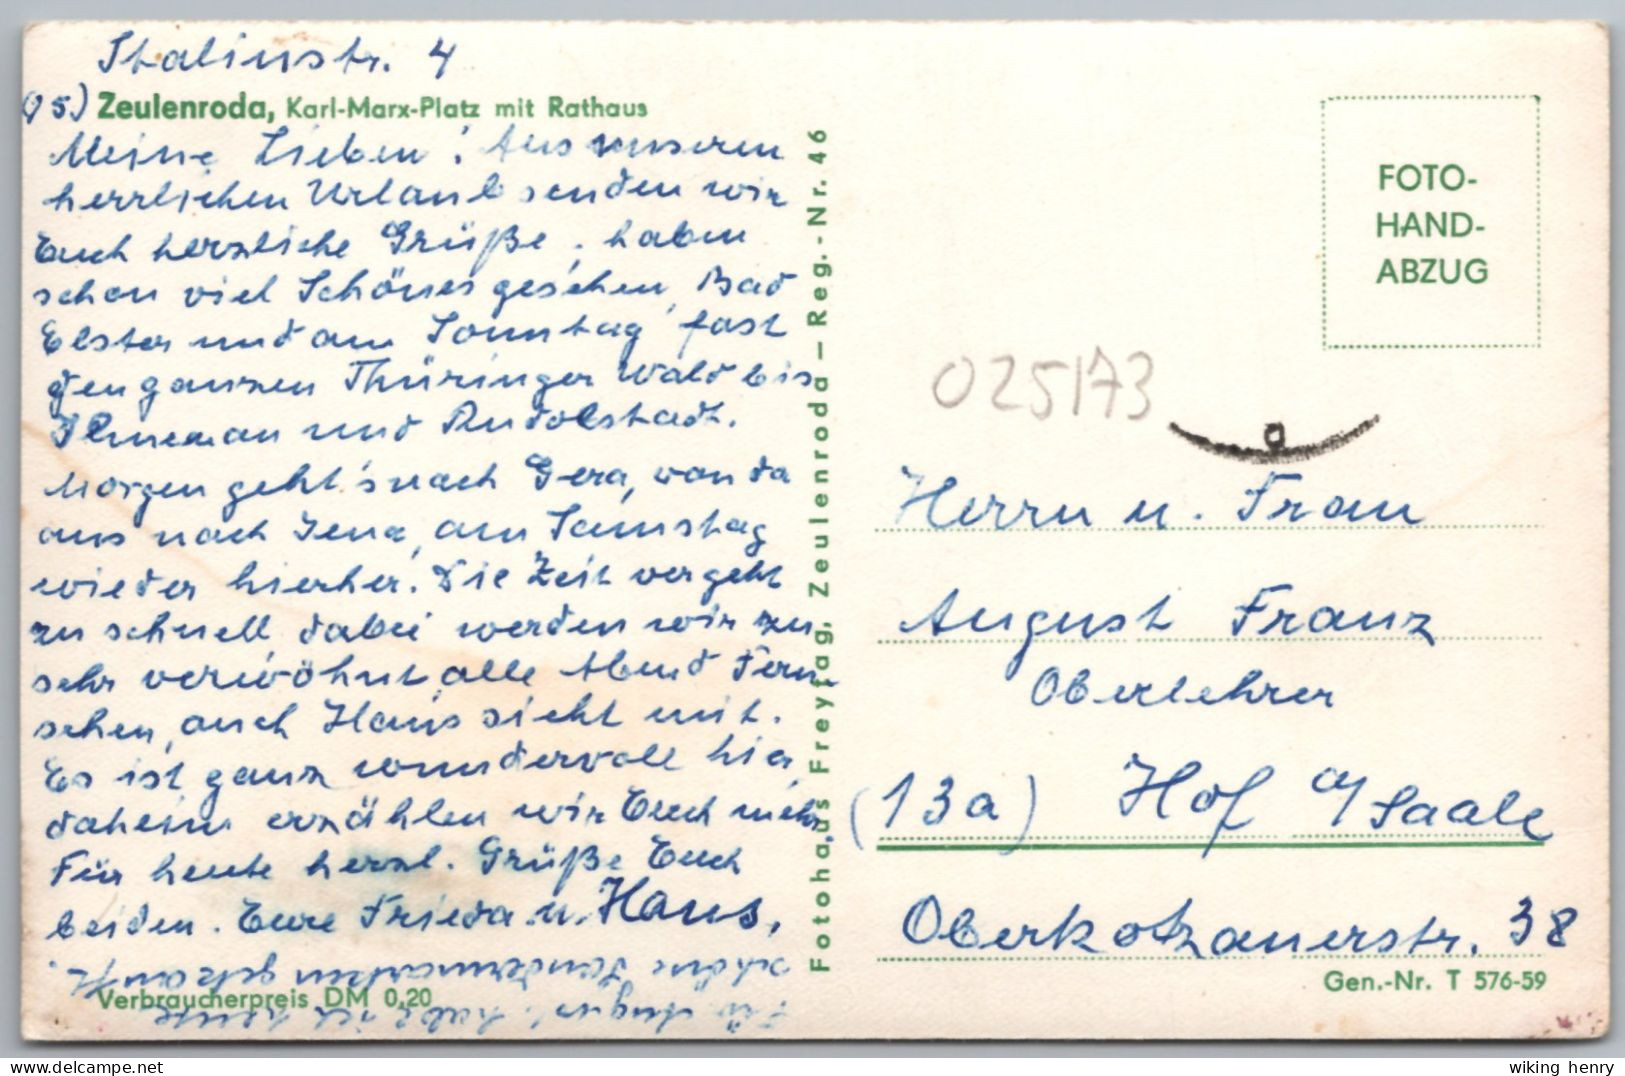 Stalinstr. 4
(15.) Zeulenroda, Karl-Marx-Platz mit Rathaus
Meine Lieben! Aus unserem
herrlichen Urlaub senden wir
Euch herzliche Grüße, haben
schon viel Schönes gesehen, Bad
Elster und am Sonntag fast
den ganzen Thüringer Wald bis
Ilmenau und Rudolstadt.
Morgen geht's nach Gera, von da
aus nach Jena, am Samstag
wieder hierher. Die Zeit vergeht
zu schnell dabei werden wir zu
sehr verwöhnt, alle Abend Fern-
sehen, auch Hans sieht mit.
Es ist ganz wundervoll hier,
daheim erzählen wir Euch mehr
Für heute herzl. Grüße Euch
beiden. Eure Frieda u. Hans,
Für August habe ich heute
schöne Sondermarken gekauft.
Verbraucherpreis DM 0,20
Fotohaus Freytag, Zeulenroda – Reg.-Nr. 46
FOTO-
HAND-
ABZUG
025173
a
Herrn u. Frau
August Franz
Oberlehrer
(13a) Hof a/Saale
Oberkotzauerstr. 38
Gen.-Nr. T 576-59
wiking henry